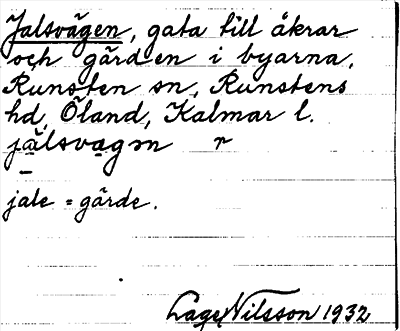 Jalsvägen, gata till åkrar
och gärden i byarna,
Runsten sn, Runstens
hd, Öland, Kalmar l.
jälsvagən r
jale = gärde.
Lage Nilsson 1932